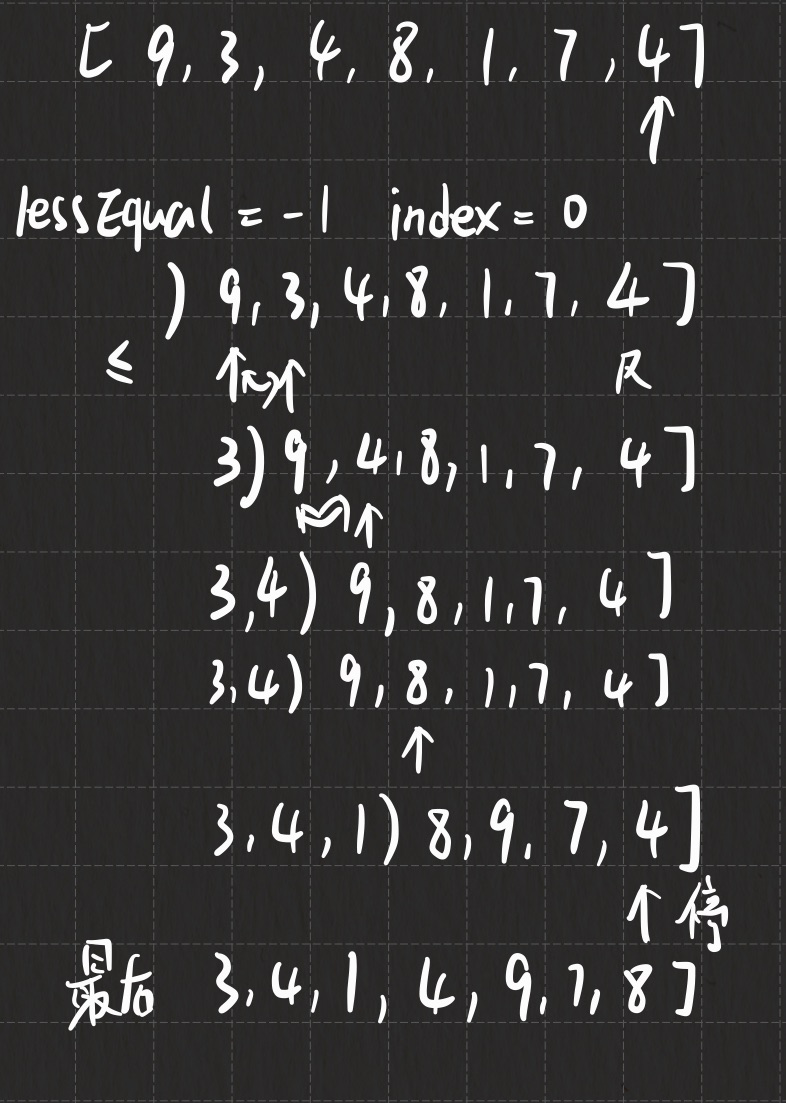 [ 9, 3, 4, 8, 1, 7, 4]
↑
lessEqual = -1 index = 0
) 9, 3, 4, 8, 1, 7, 4 ]
≤ ↑↔↑
3) 9, 4, 8, 1, 7, 4 ]
↔ ↑
3,4) 9, 8, 1, 7, 4 ]
3,4) 9, 8, 1, 7, 4 ]
↑
3, 4, 1) 8, 9, 7, 4 ]
↑ 停
最后 3, 4, 1, 4, 9, 7, 8 ]